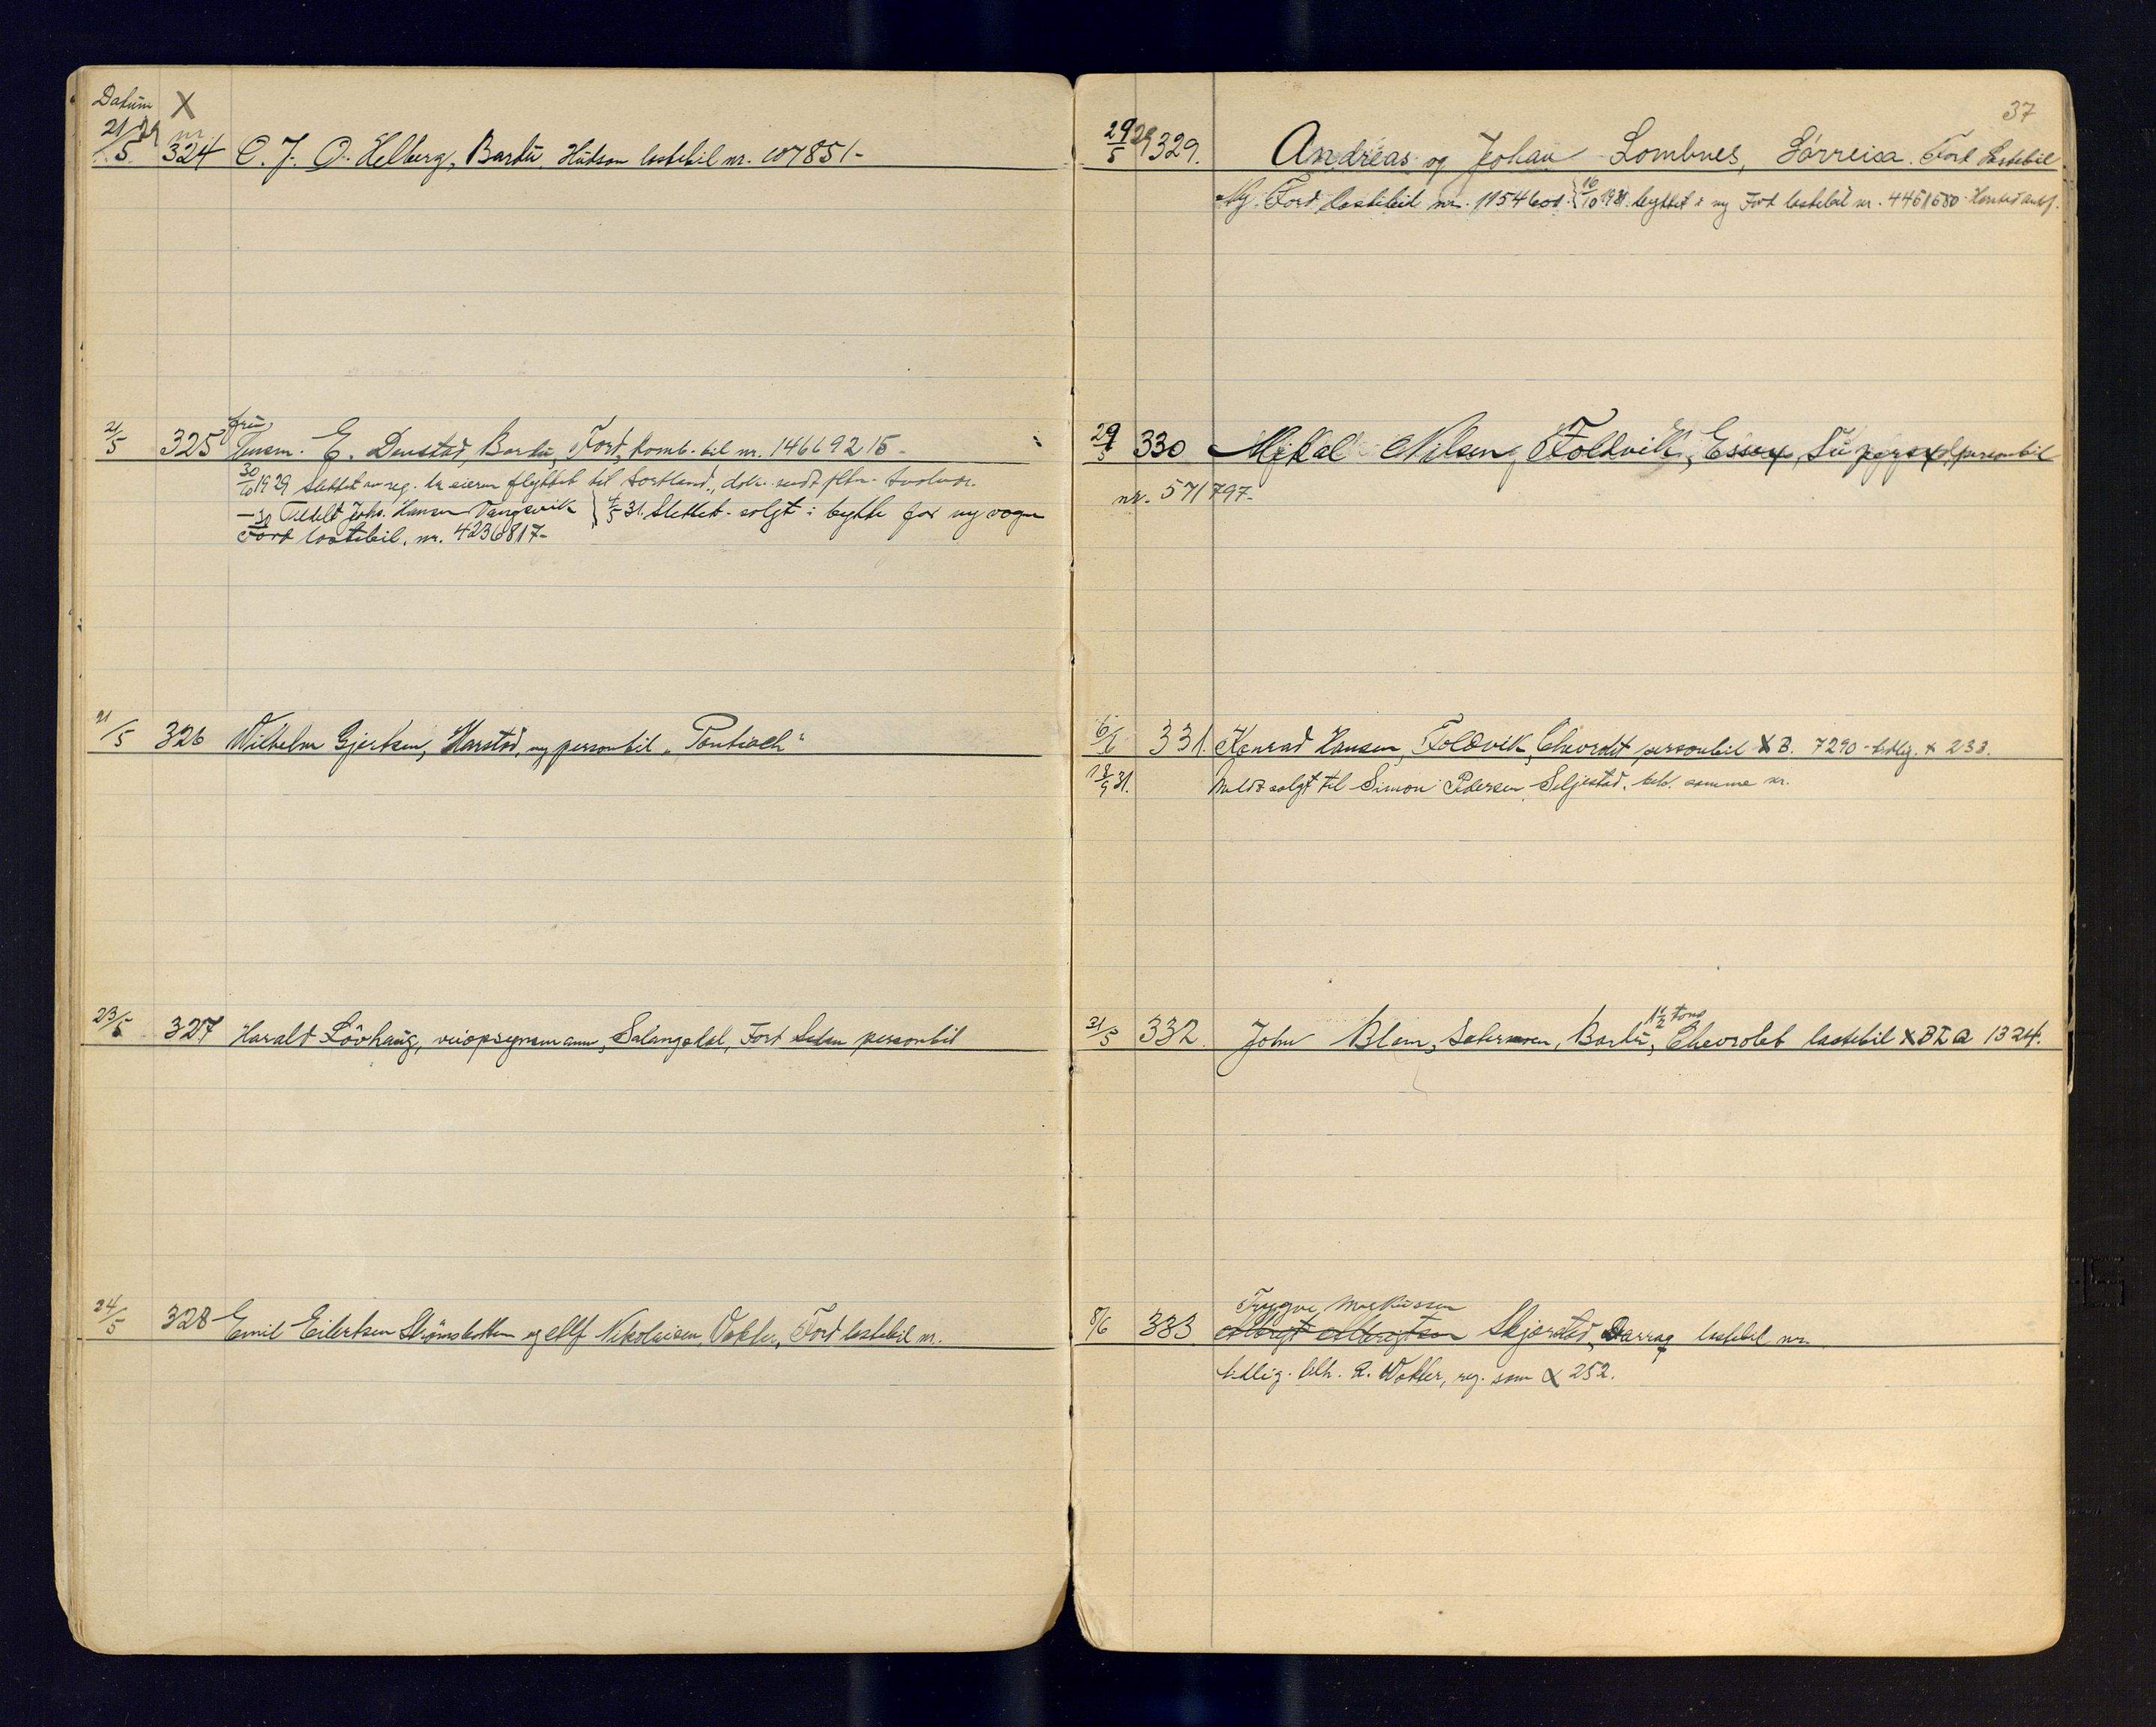 Datum X
21/5 29 nr. 324 O. J. O. Helberg, Bardu, Hudson lastebil nr. 107851-
21/5 325 fru E. Donstad, Bardu, Ford, komb. bil nr. 14669215-
30/10 1929 slettet av reg. da eieren flyttet til Sortland, dok. sendt
Tildelt Johs. Hansen Vangsvik } 4/5 31. Slettet - solgt i bytte for ny vogn
Ford lastebil, nr. 4236817-
21/5 326 Wilhelm Gjertsen, Harstad, ny personbil "Pontiach"
23/5 327 Harald Lövhaug, veiopsynsmann, Salangsdal, Ford Sedan personbil
24/5 328 Emil Eilertsen Strömsbotten og Alf Nikolaisen, Ford lastebil nr.
37
29/5 29 329. Andreas og Johan Lombnes, Sörreisa. Ford Lastebil
Ny. Ford lastebil nr. 1154601. } 16/10 1931. byttet i ny Ford lastebil nr. 4461580
29/5 330 Mikal Nilsen, Foldvik, Essex, personbil
nr. 571797-
6/6 331. Konrad Hansen, Foldvik, Chevrolet personbil X B. 7290 - tidlig. X 233.
18/9 31. Meldt solgt til Simon Pedersen, Seljestad, beh. samme nr.
31/5 332. John Blom, Sætermoen, Bardu, 1 1/2 tons Chevrolet lastebil X BIQ 1324.
8/6 333 Trygve Markussen
Albrigt Albrigtsen Skjærstad, Darraq lastebil nr.
tidlig. tilh. A. Wokter, reg. som X 252.